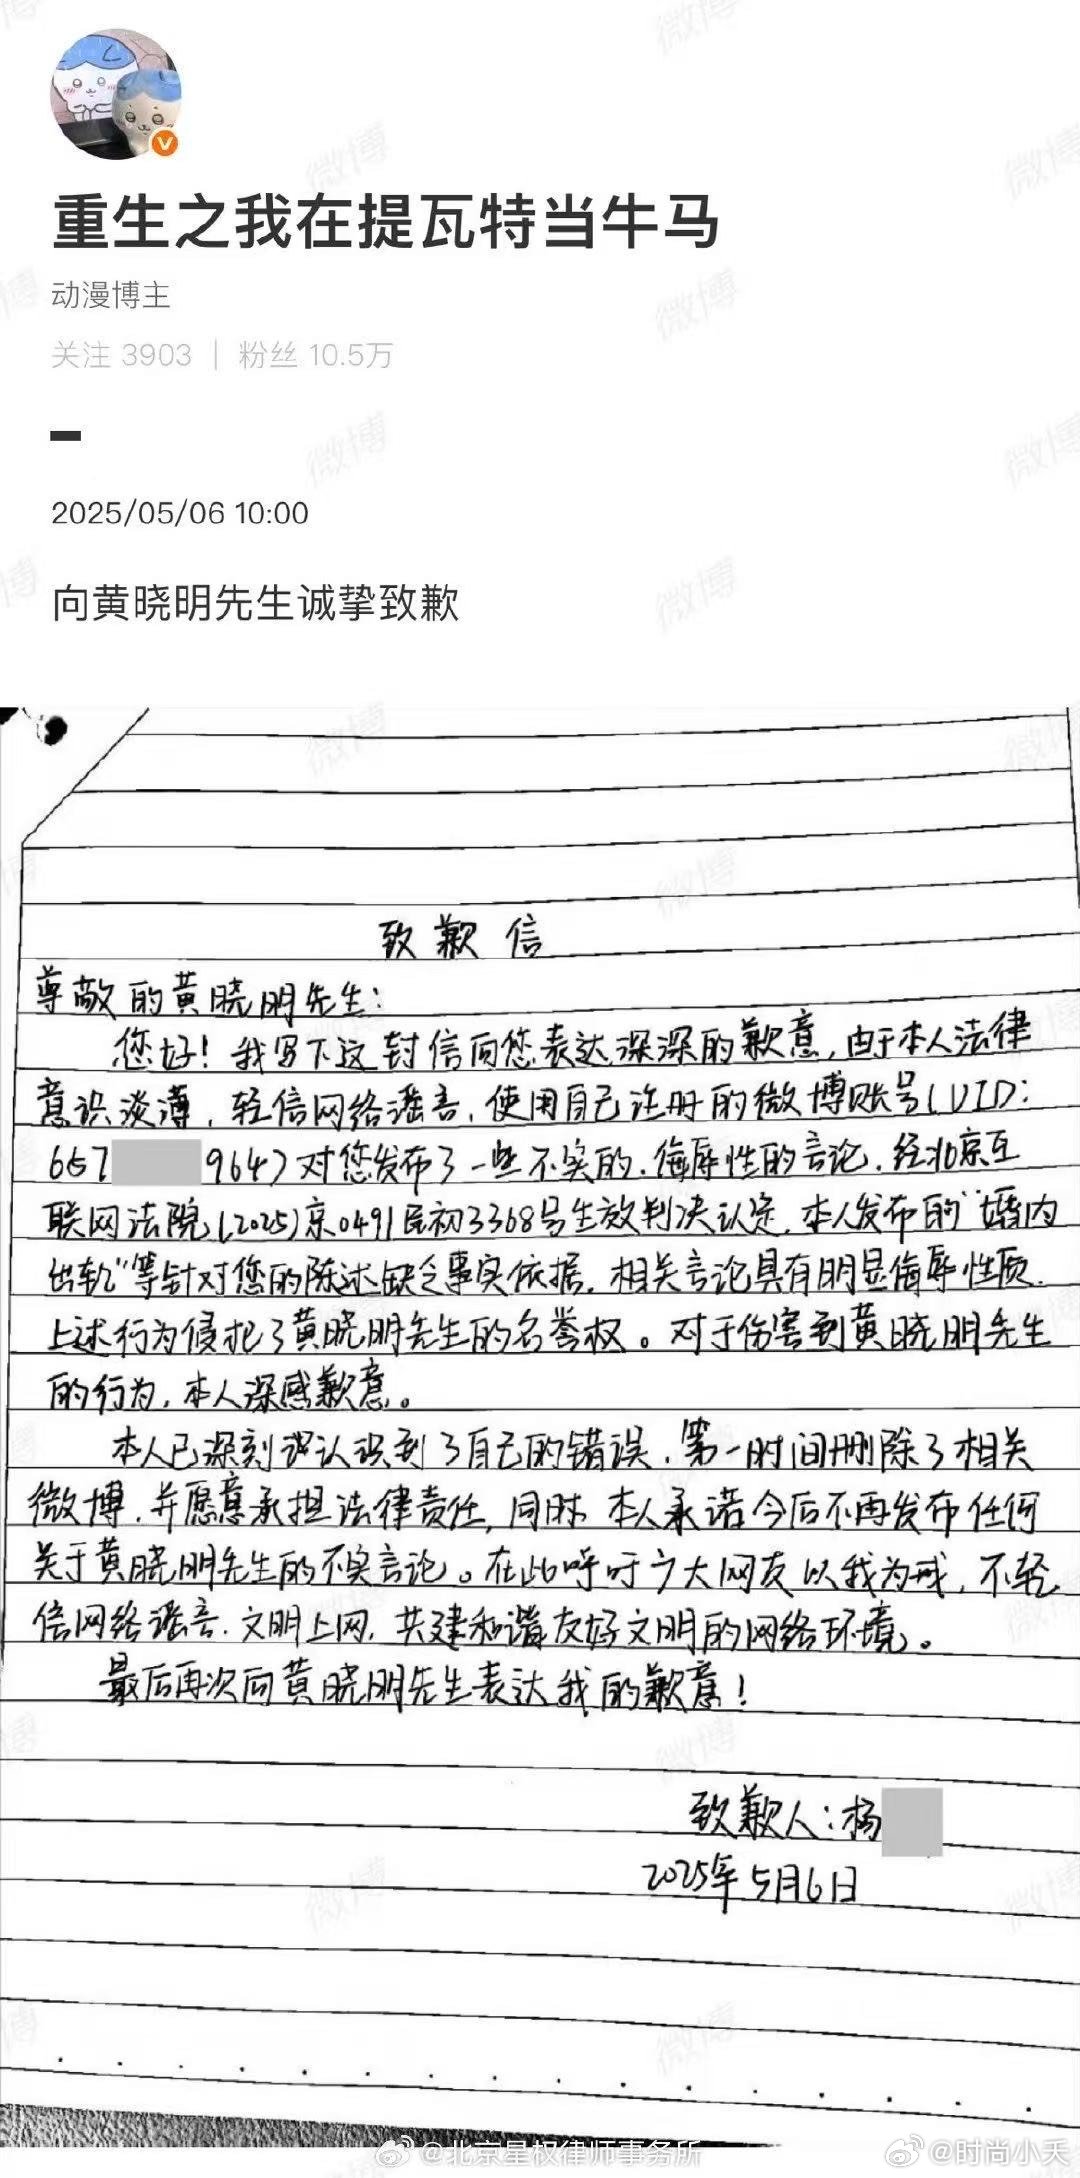 重生之我在提瓦特当牛马
动漫博主
关注 3903 | 粉丝 10.5万
2025/05/06 10:00
向黄晓明先生诚挚致歉
致歉信
尊敬的黄晓明先生:
您好!我写下这封信向您表达深深的歉意,由于本人法律
意识淡薄,轻信网络谣言,使用自己注册的微博账号(UID:
657 9647对您发布了一些不实的,侮辱性的言论,经北京互
联网法院(2025)京0491民初3368号生效判决认定,本人发布的“婚内
出轨”等针对您的陈述缺乏事实依据,相关言论具有明显侮辱性质,
上述行为侵犯了黄晓明先生的名誉权。对于伤害到黄晓明先生
的行为,本人深感歉意。
本人已深刻认识到了自己的错误,第一时间删除了相关
微博,并愿意承担法律责任,同时,本人承诺今后不再发布任何
关于黄晓明先生的不实言论。在此呼吁广大网友以我为戒,不轻
信网络谣言,文明上网,共建和谐友好文明的网络环境。
最后再次向黄晓明先生表达我的歉意!
致歉人:杨
2025年5月6日
@北京星权律师事务所
@时尚小天
微博